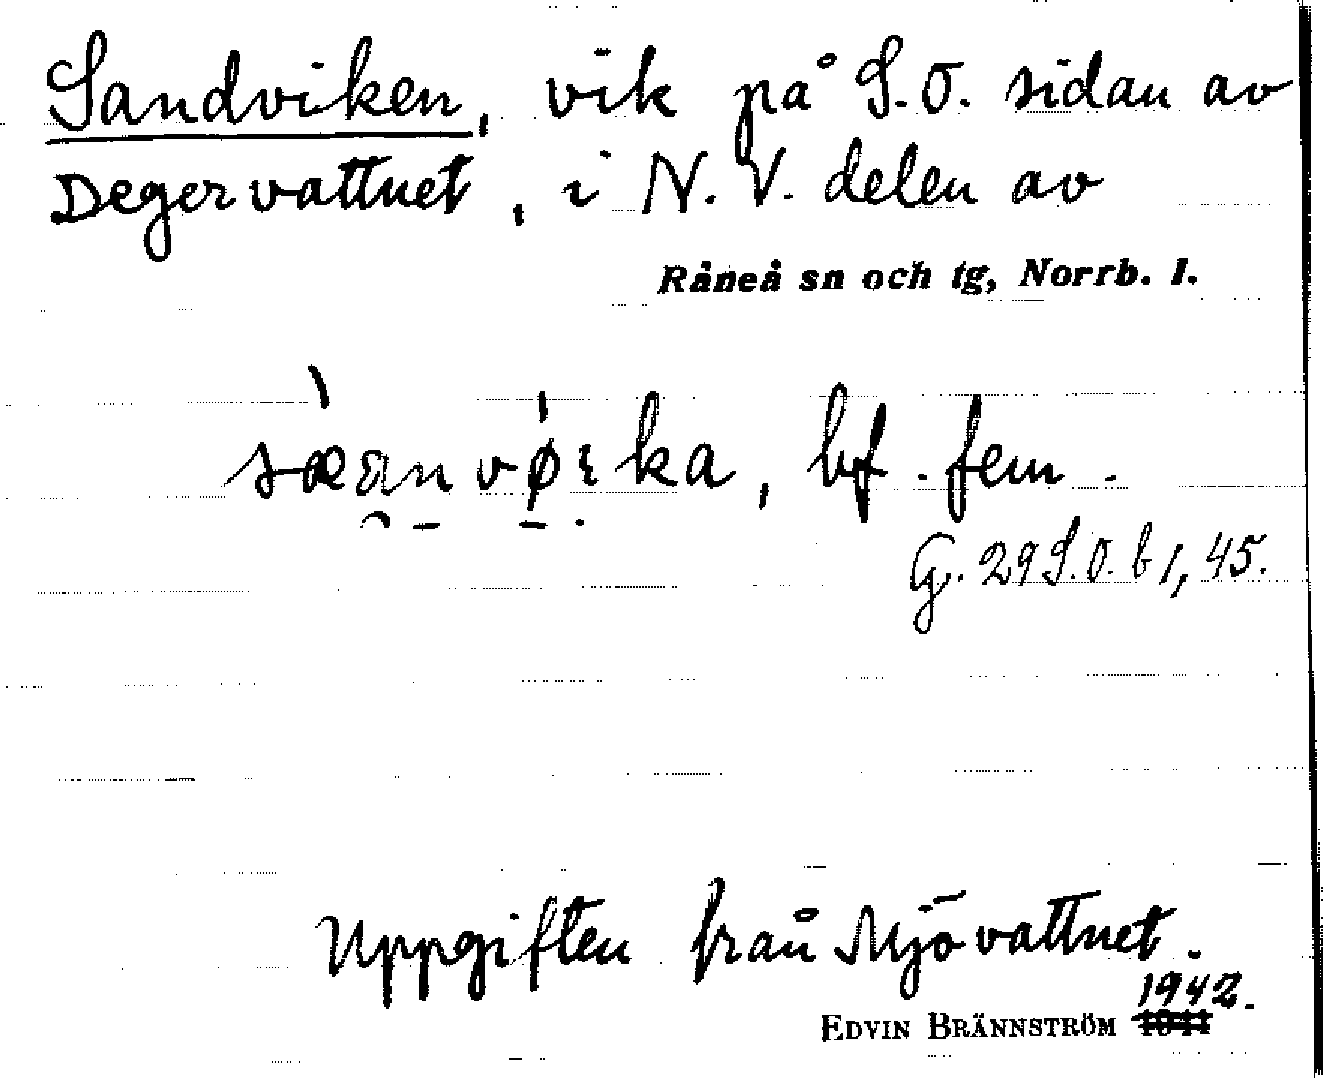 Sandviken, vik på S.O. sidan av
Degervattnet, i N.V. delen av
Råneå sn och tg, Norrb. l.
bf. fem.
G. 29 S.O. b 1, 45.
Uppgiften från Mjövattnet.
1942.
EDVIN BRÄNNSTRÖM 1941